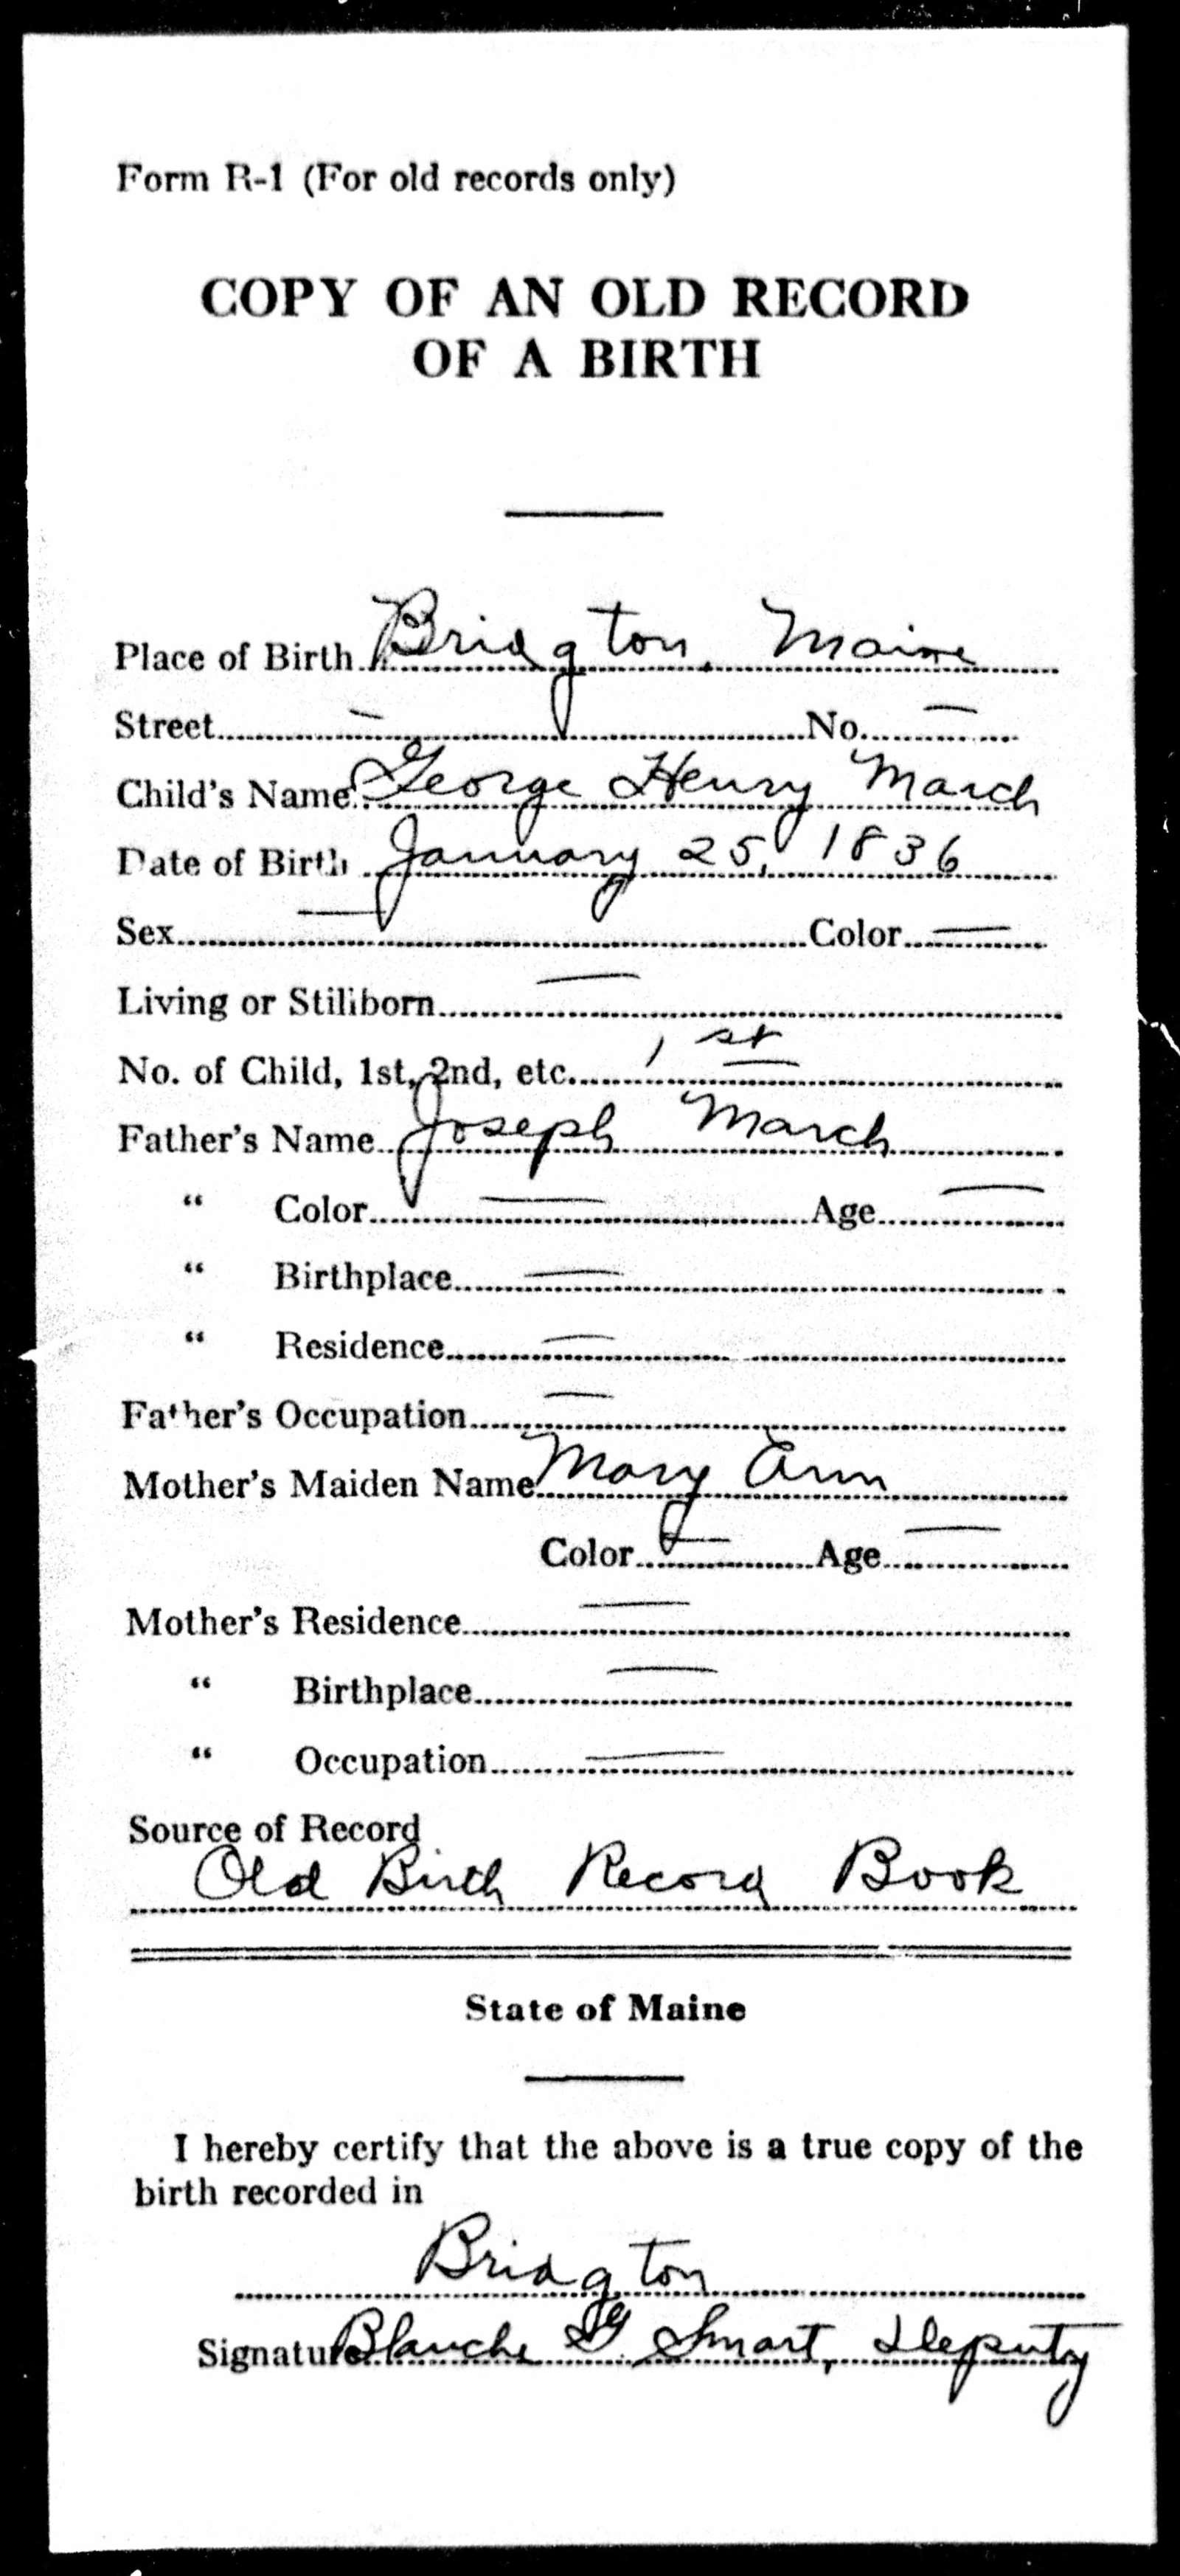 Form R-1 (For old records only)
COPY OF AN OLD RECORD
OF A BIRTH
Place of Birth Bridgton, Maine
Street — No. —
Child's Name George Henry March
Date of Birth January 25, 1836
Sex — Color —
Living or Stillborn —
No. of Child, 1st, 2nd, etc. 1st
Father's Name Joseph March
" Color — Age —
" Birthplace —
" Residence —
Father's Occupation —
Mother's Maiden Name Mary Ann
Color — Age —
Mother's Residence —
" Birthplace —
" Occupation —
Source of Record
Old Birth Record Book
State of Maine
I hereby certify that the above is a true copy of the
birth recorded in
Bridgton
Signature Blanche G. Smart, Deputy